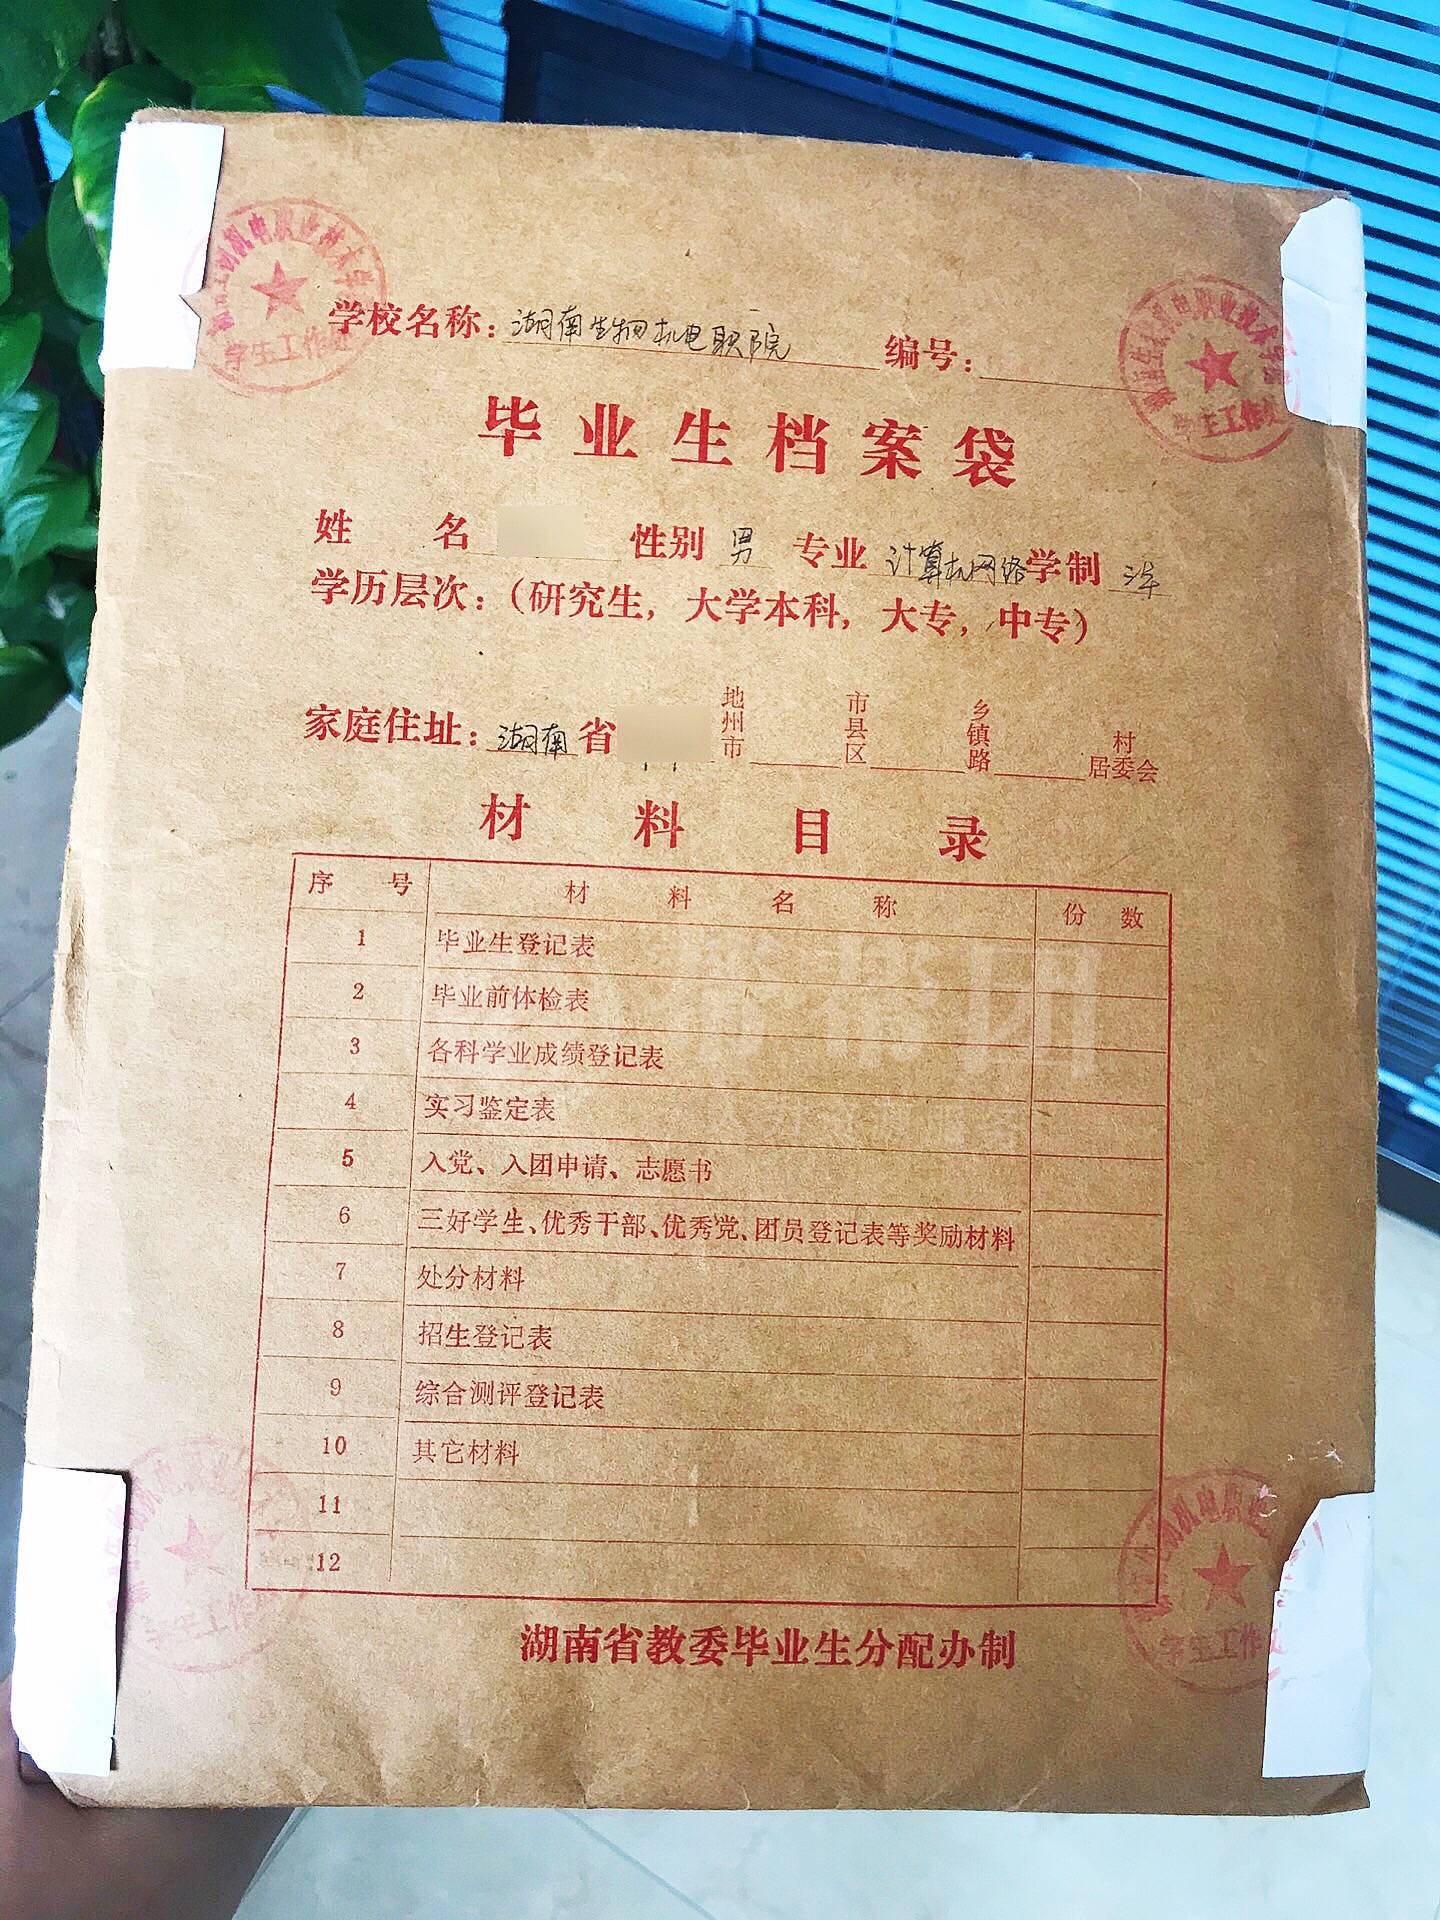 学校名称：湖南生物机电职院 编号：
毕业生档案袋
姓 名 性别 男 专业 计算机网络 学制
学历层次：（研究生，大学本科，大专，中专）
家庭住址：湖南省 地州市 市县区 乡镇路 村居委会
材料目录
序号 材料名称 份数
1 毕业生登记表
2 毕业前体检表
3 各科学业成绩登记表
4 实习鉴定表
5 入党、入团申请、志愿书
6 三好学生、优秀干部、优秀党、团员登记表等奖励材料
7 处分材料
8 招生登记表
9 综合测评登记表
10 其它材料
11
12
湖南省教委毕业生分配办制
机电职业技术学
学生工作处
机电职业技术学院
学生工作处
机电职业
学生工作处
机电职业
学生工作